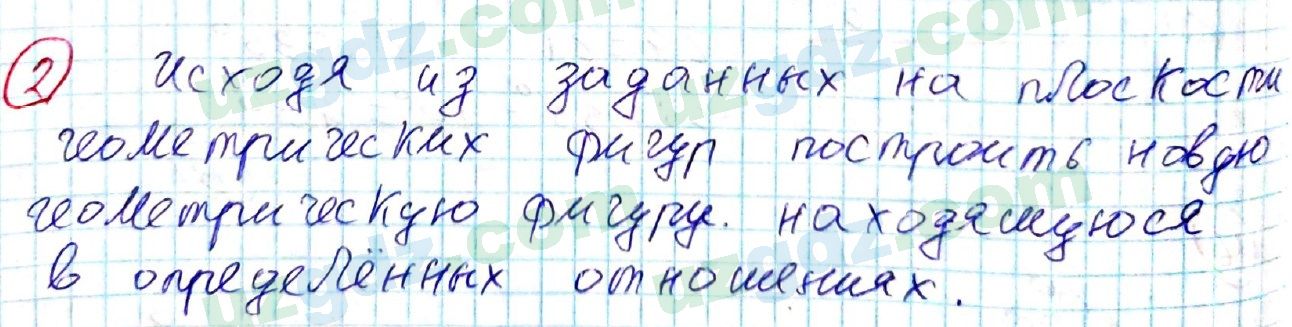 2 Исходя из заданных на плоскости
геометрических фигур построить новую
геометрическую фигуру. находящуюся
в определённых отношениях.
uzgdz.com